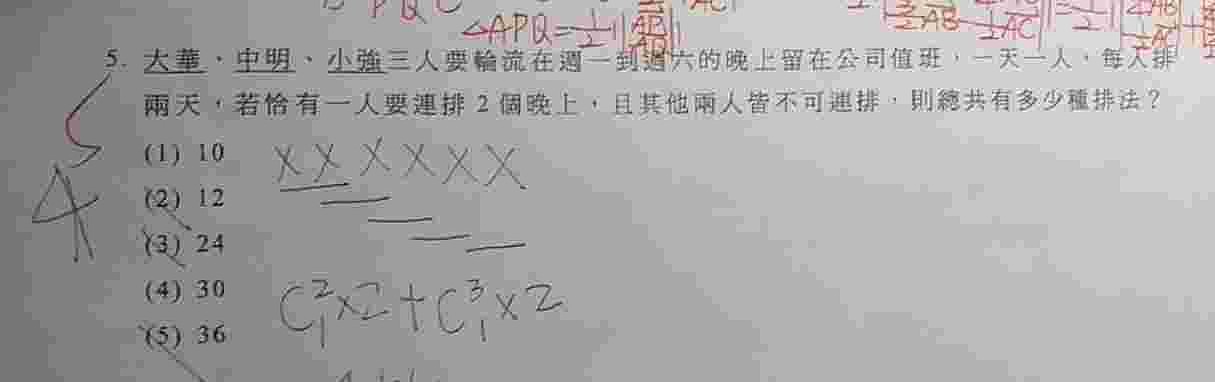 △APQ=1/2||AB
5. 大華、中明、小強三人要輪流在週一到週六的晚上留在公司值班，一天一人，每人排
兩天，若恰有一人要連排 2 個晚上，且其他兩人皆不可連排，則總共有多少種排法？
(1) 10
X X X X X X
(2) 12
(3) 24
(4) 30
C²₁×2+C³₁×2
(5) 36
5
4